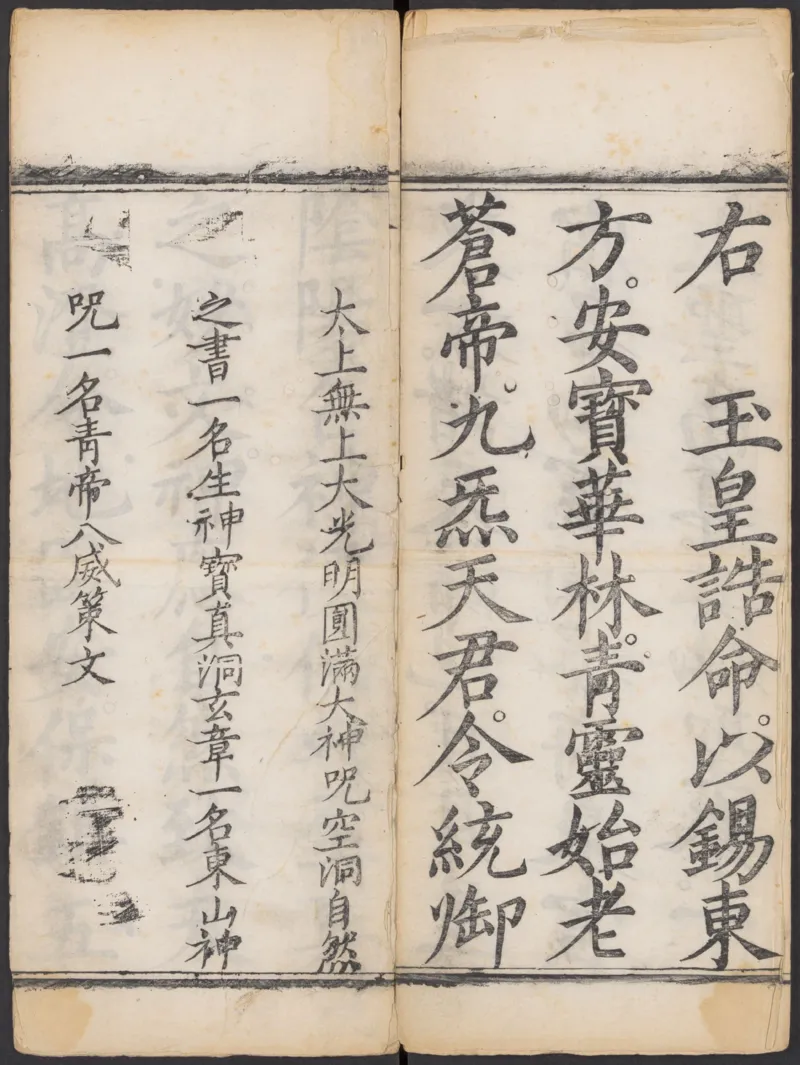 右 玉皇誥命。以錫東
方。安寶華林。青靈始老
蒼帝。九炁天君。令統御
太上無上大光明圓滿大神呪空洞自然
之書一名生神寶真洞玄章一名東山神
呪一名青帝八威策文